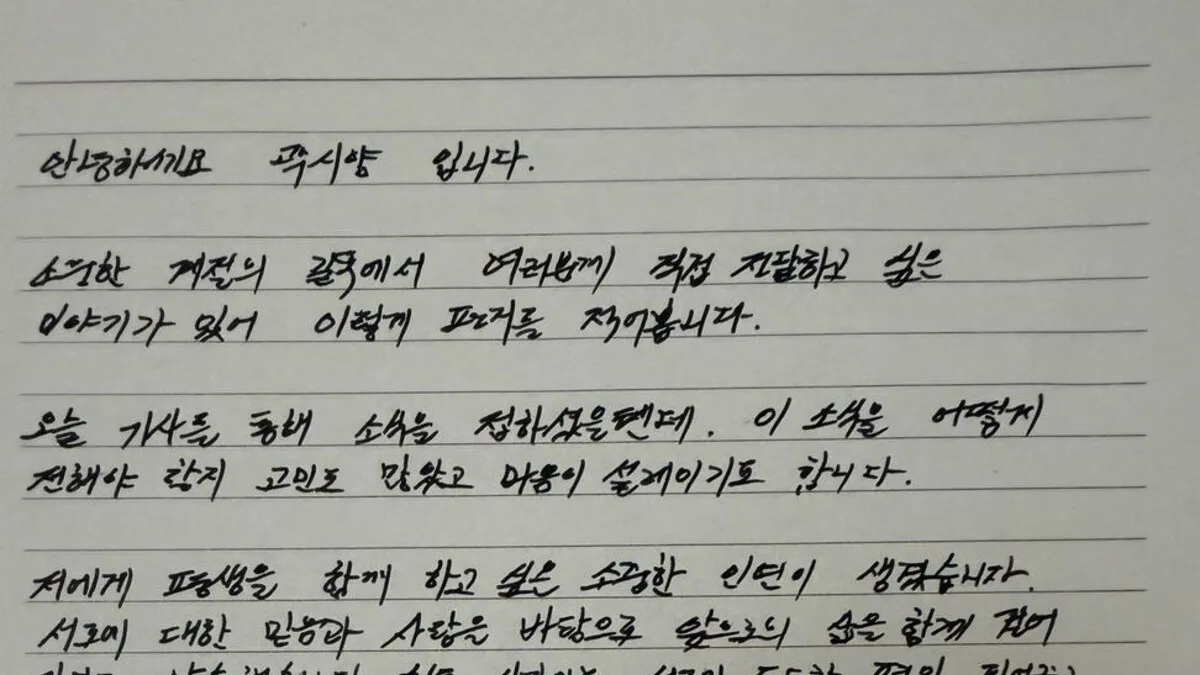 안녕하세요 곽시양 입니다.
소중한 계절의 길목에서 여러분께 직접 전달하고 싶은
이야기가 있어 이렇게 편지를 적어봅니다.
오늘 기사를 통해 소식을 접하셨을텐데. 이 소식을 어떻게
전해야 할지 고민도 많았고 마음이 설레이기도 합니다.
저에게 평생을 함께 하고 싶은 소중한 인연이 생겼습니다.
서로에 대한 믿음과 사랑을 바탕으로 앞으로의 삶을 함께 걸어